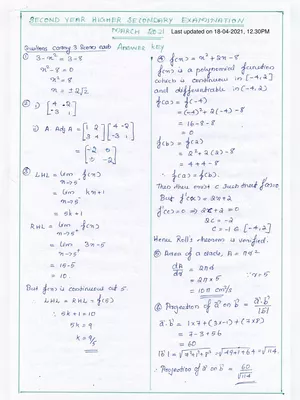 SECOND YEAR HIGHER SECONDARY EXAMINATION
MARCH 2021
Last updated on 18-04-2021, 12.30PM
Questions carry 3 Scores each
Answer key
① 3-x² = 3-8
x²-8=0
x²=8
x = ±2√2
② i) [4 -2
-3 1]
ii) A. Adj A = [1 2
3 4] [4 -2
-3 1]
= [-2 0
0 -2]
③ LHL = lim f(x)
x→5⁻
= lim kx+1
x→5
= 5k+1
RHL = lim f(x)
x→5⁺
= lim 3x-5
x→5
= 15-5
= 10
But f(x) is continuous at 5.
LHL = RHL = f(5)
∴ 5k+1=10
5k = 9
k = 9/5
④ f(x) = x²+2x-8
f(x) is a polynomial function
which is continuous in [-4,2]
and differentiable in (-4,2)
f(a) = f(-4)
= (-4)²+2(-4)-8
= 16-8-8
= 0
f(b) = f(2)
= 2²+2(2)-8
= 4+4-8
∴ f(a) = f(b).
Then there exist c such that f'(c)=0.
But f'(x) = 2x+2
f'(c)=0 ⇒ 2c+2=0
2c = -2
c = -1 ∈ [-4,2]
Hence Roll's theorem is verified.
⑤ Area of a circle, A = πr²
dA/dr = 2πr
= 2π×5
∵ r=5
= 10π cm²/s
⑥ Projection of a⃗ on b⃗ = a⃗·b⃗/|b⃗|
a⃗·b⃗ = 1×7+(3×-1)+(7×8)
= 7-3+56
= 60
|b⃗| = √7²+1²+8² = √49+1+64 = √114
∴ Projection of a⃗ on b⃗ = 60/√114